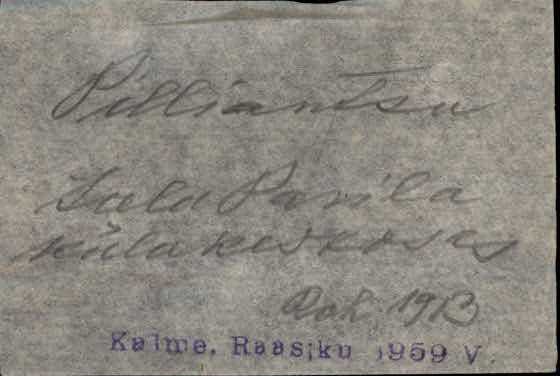 Pilliantsu
Parila
küla keskosas
1913
Kalme, Raasiku 1959 V.